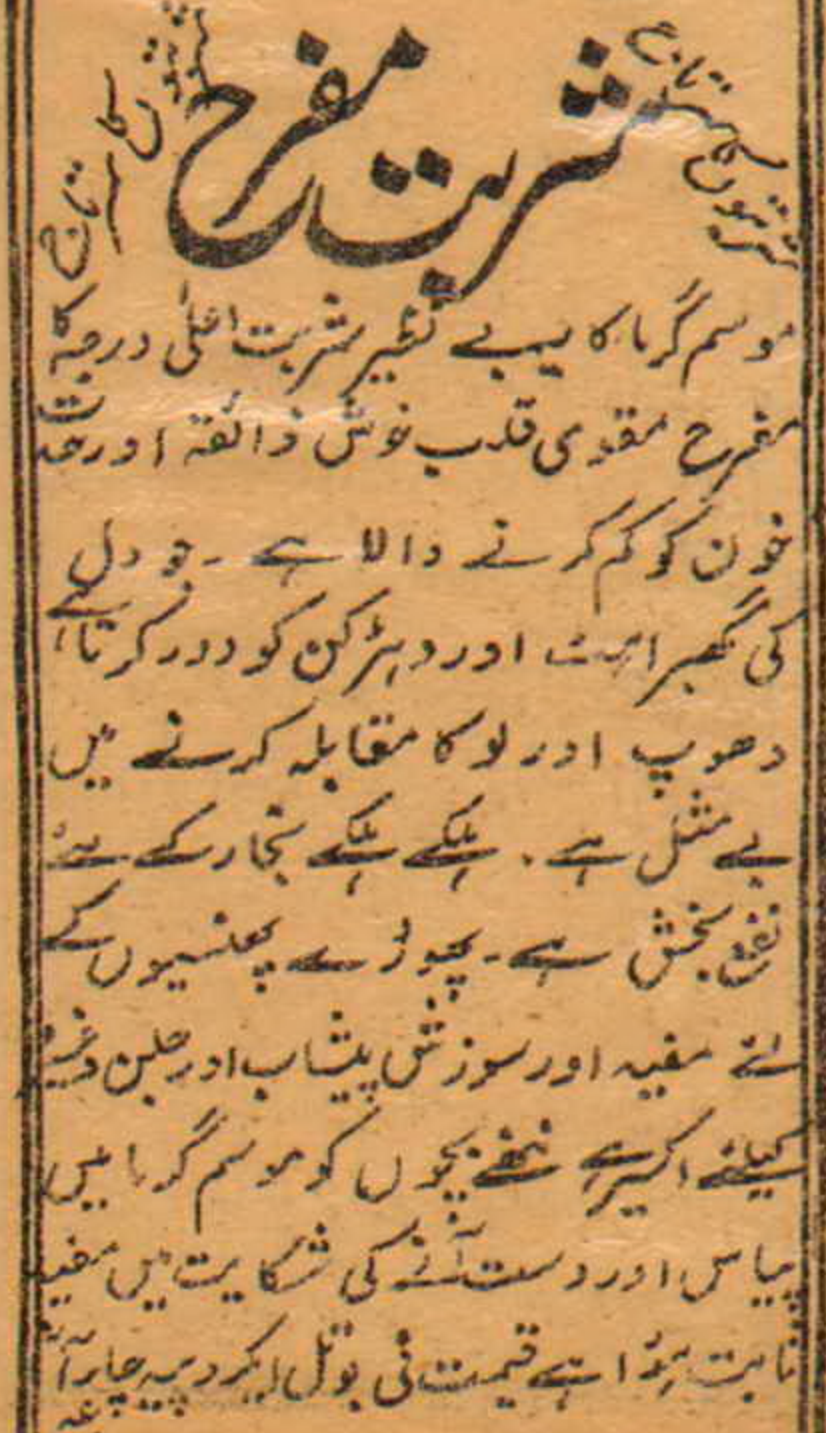 شربتوں کا سرتاج
شربت مفرح
شربتوں کا سرتاج
موسم گرما کا یہ بے نظیر شربت اعلٰی درجہ کا
مفرح مقوی قلب خوش ذائقہ اور حدت
خون کو کم کرنے والا ہے ۔ جو دل
کی گھبراہٹ اور دہڑکن کو دور کرتا ہے
دھوپ اور لو کا مقابلہ کرنے میں
بے مثل ہے ۔ ہلکے ہلکے بخار کے لئے
نفع بخش ہے ۔ پھوڑے پھنسیوں کے
لئے مفید اور سوزش پیشاب اور جلن وغیرہ
کیلئے اکسیر ہے ننھے بچوں کو موسم گرما میں
پیاس اور دست آنے کی شکایت میں مفید
ثابت ہوا ہے قیمت فی بوتل ایکروپیہ چار آنہ